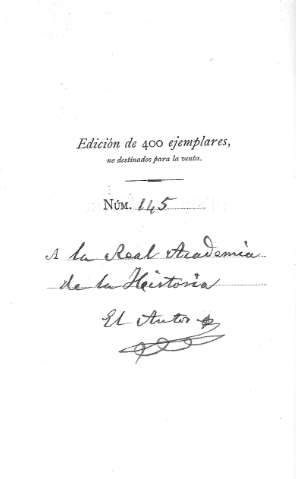 Edición de 400 ejemplares,
no destinados para la venta.
NÚM. 145
A la Real Academia
de la Historia
El Autor